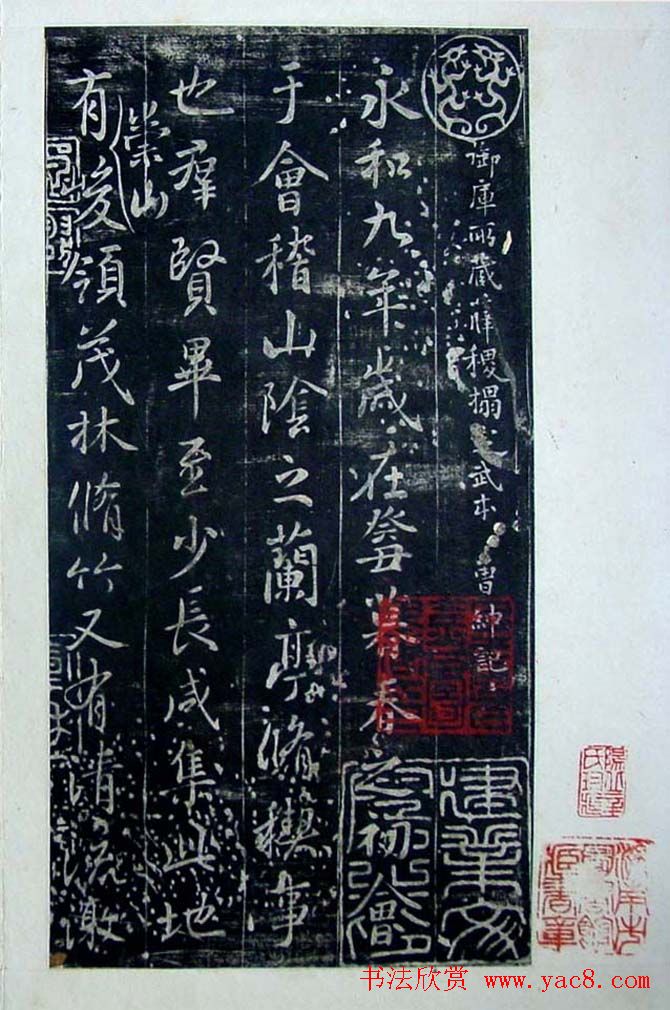 御庫所藏薛稷搨武本 曹紳記
永和九年歲在癸丑暮春之初會
于會稽山陰之蘭亭脩禊事
也羣賢畢至少長咸集此地
崇山
有峻領茂林脩竹又有清流激
建業文房之印
书法欣赏 www.yac8.com